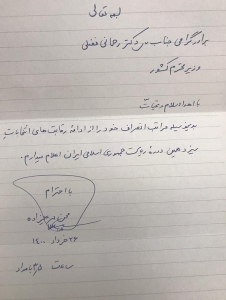 بسمه تعالی
برادر گرامی جناب آقای دکتر رحمانی فضلی
وزیر محترم کشور
با اهداء سلام و تحیات
بدینوسیله مراتب انصراف خود را از ادامه رقابت های انتخابات
سیزدهمین دوره ریاست جمهوری اسلامی ایران اعلام میدارم.
با احترام
محسن مهرعلیزاده
۲۶ خرداد ۱۴۰۰
ساعت بامداد